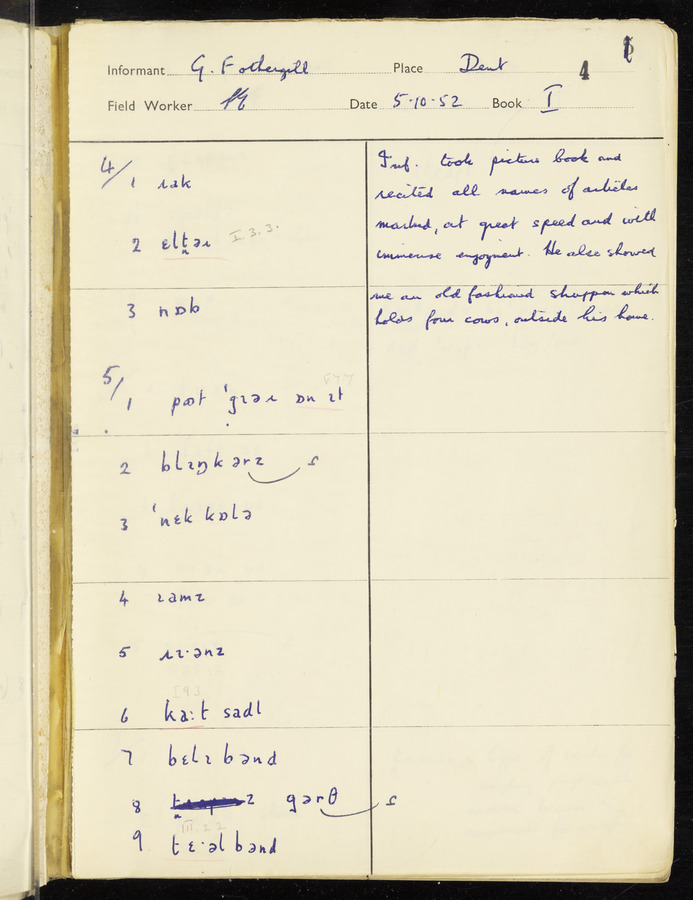 Informant G. Fothergill Place Dent 4
Field Worker Date 5·10·52 Book I
4/1 ɹak
2 elt̪əɹ I.3.3.
3 nɒb
Inf. took picture book and
recited all names of articles
marked, at great speed and with
immense enjoyment. He also showed
me an old fashioned shuppon which
holds four cows, outside his home.
5/1 ˈgɪəɹ ɒn ɪt
2 blɪŋkərz
3 ˈnɛk kɒlə
4 amz
5
6 ka:t sadl
7 bɛlɪ band
8 gərθ
9 tɛ·əl band
III.22